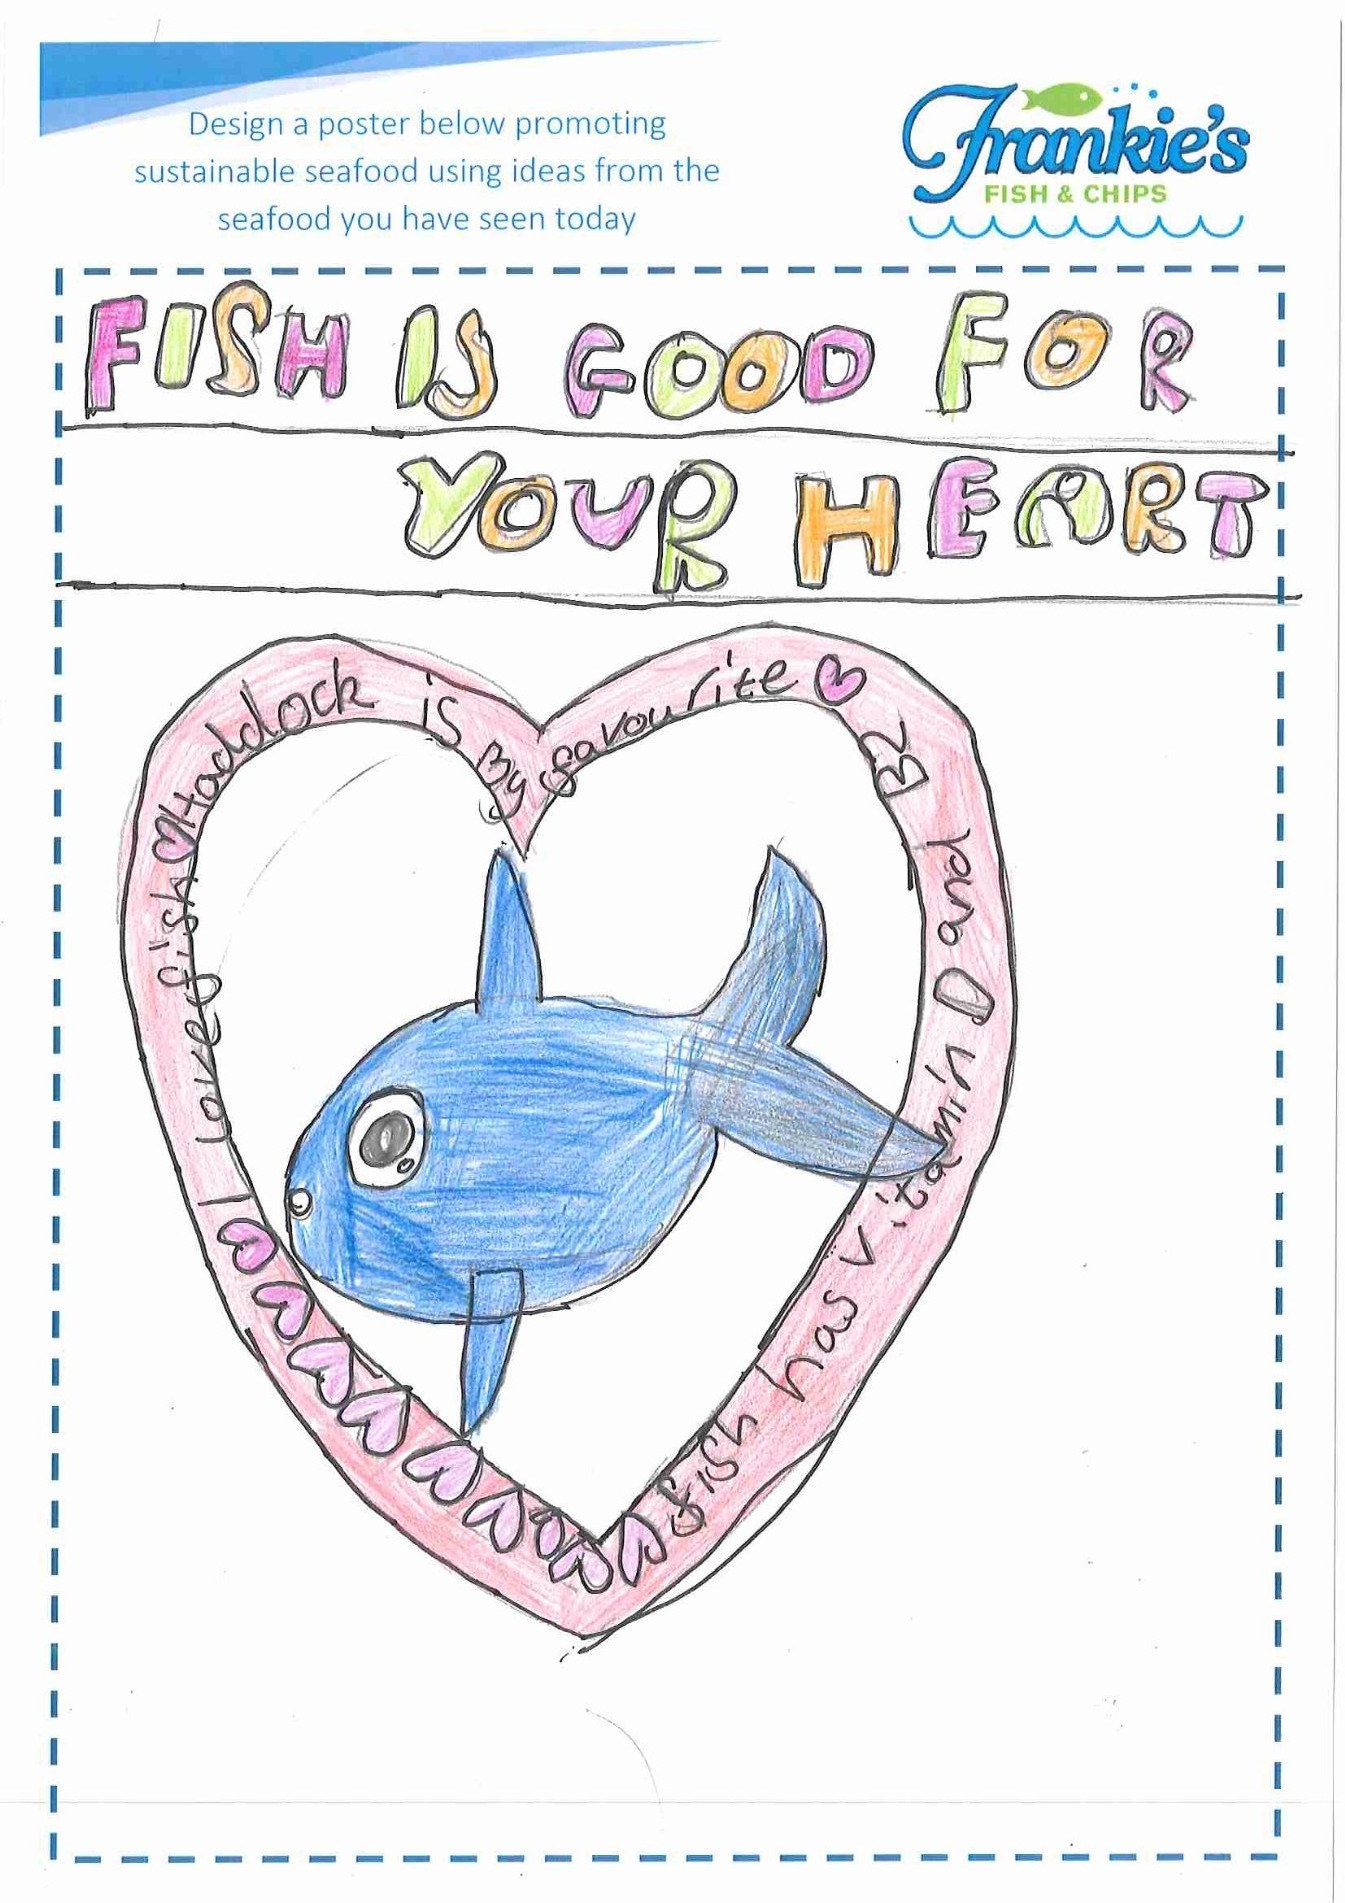 Design a poster below promoting
sustainable seafood using ideas from the
seafood you have seen today
Frankie's
FISH & CHIPS
FISH IS GOOD FOR
YOUR HEART
I love fish Haddock is my favourite
fish has vitamin D and B2